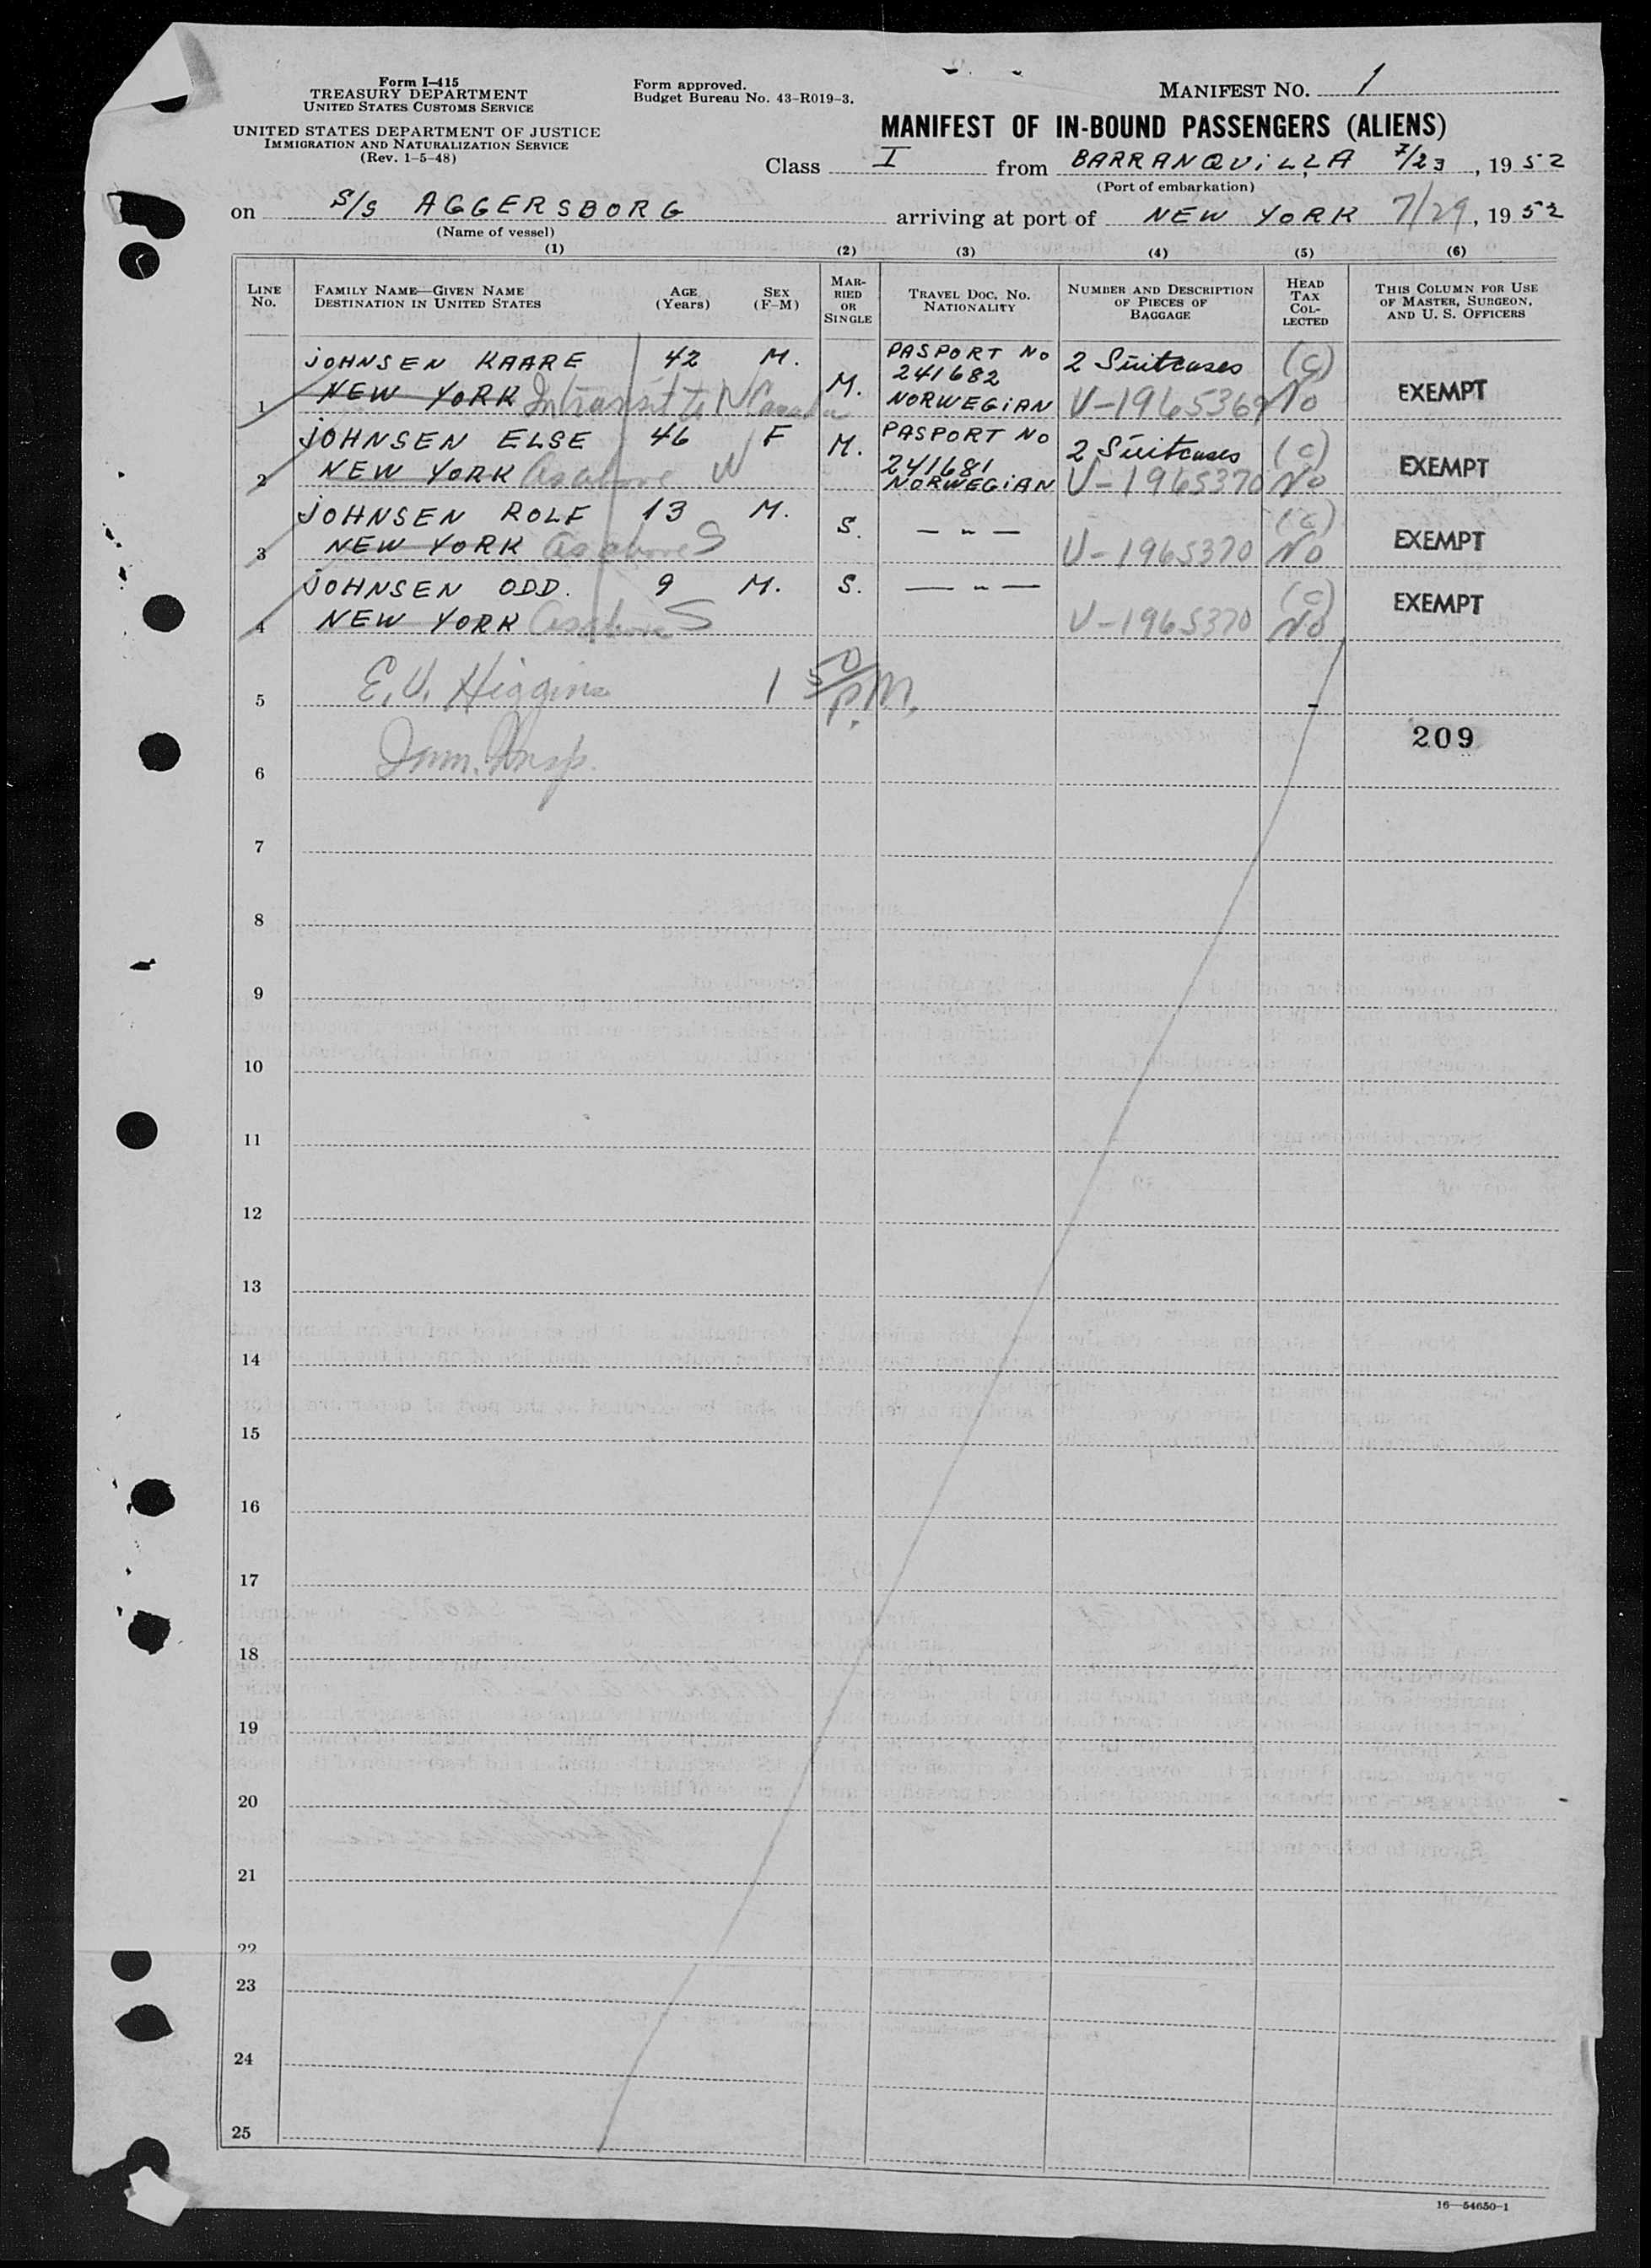 Form I-415
TREASURY DEPARTMENT
UNITED STATES CUSTOMS SERVICE
UNITED STATES DEPARTMENT OF JUSTICE
IMMIGRATION AND NATURALIZATION SERVICE
(Rev. 1-5-48)
Form approved.
Budget Bureau No. 43-R019-3.
MANIFEST NO. 1
MANIFEST OF IN-BOUND PASSENGERS (ALIENS)
Class I from BARRANQUiLLA 7/23, 1952
(Port of embarkation)
on S/S AGGERSBORG arriving at port of NEW YORK 7/29, 1952
(Name of vessel)
(1) (2) (3) (4) (5) (6)
LINE No. FAMILY NAME—GIVEN NAME DESTINATION IN UNITED STATES AGE (Years) SEX (F-M) MARRIED OR SINGLE TRAVEL DOC. NO. NATIONALITY NUMBER AND DESCRIPTION OF PIECES OF BAGGAGE HEAD TAX COLLECTED THIS COLUMN FOR USE OF MASTER, SURGEON, AND U. S. OFFICERS
JOHNSEN KAARE 42 M. PASPORT No 2 Suitcases (C)
241682
1 NEW YORK Intransit to Canada M. NORWEGiAN V-1965369 No EXEMPT
JOHNSEN ELSE 46 F M. PASPORT No 2 Suitcases (C)
241681
2 NEW YORK As above W NORWEGiAN V-1965370 No EXEMPT
JOHNSEN ROLF 13 M. S. — " — (C)
3 NEW YORK As above S V-1965370 No EXEMPT
JOHNSEN ODD. 9 M. S. — " — (C)
4 NEW YORK As above S V-1965370 No EXEMPT
5 E.V. Higgins 1 50/P.M.
209
6 Imm. Insp.
7
8
9
10
11
12
13
14
15
16
17
18
19
20
21
22
23
24
25
16—54650-1